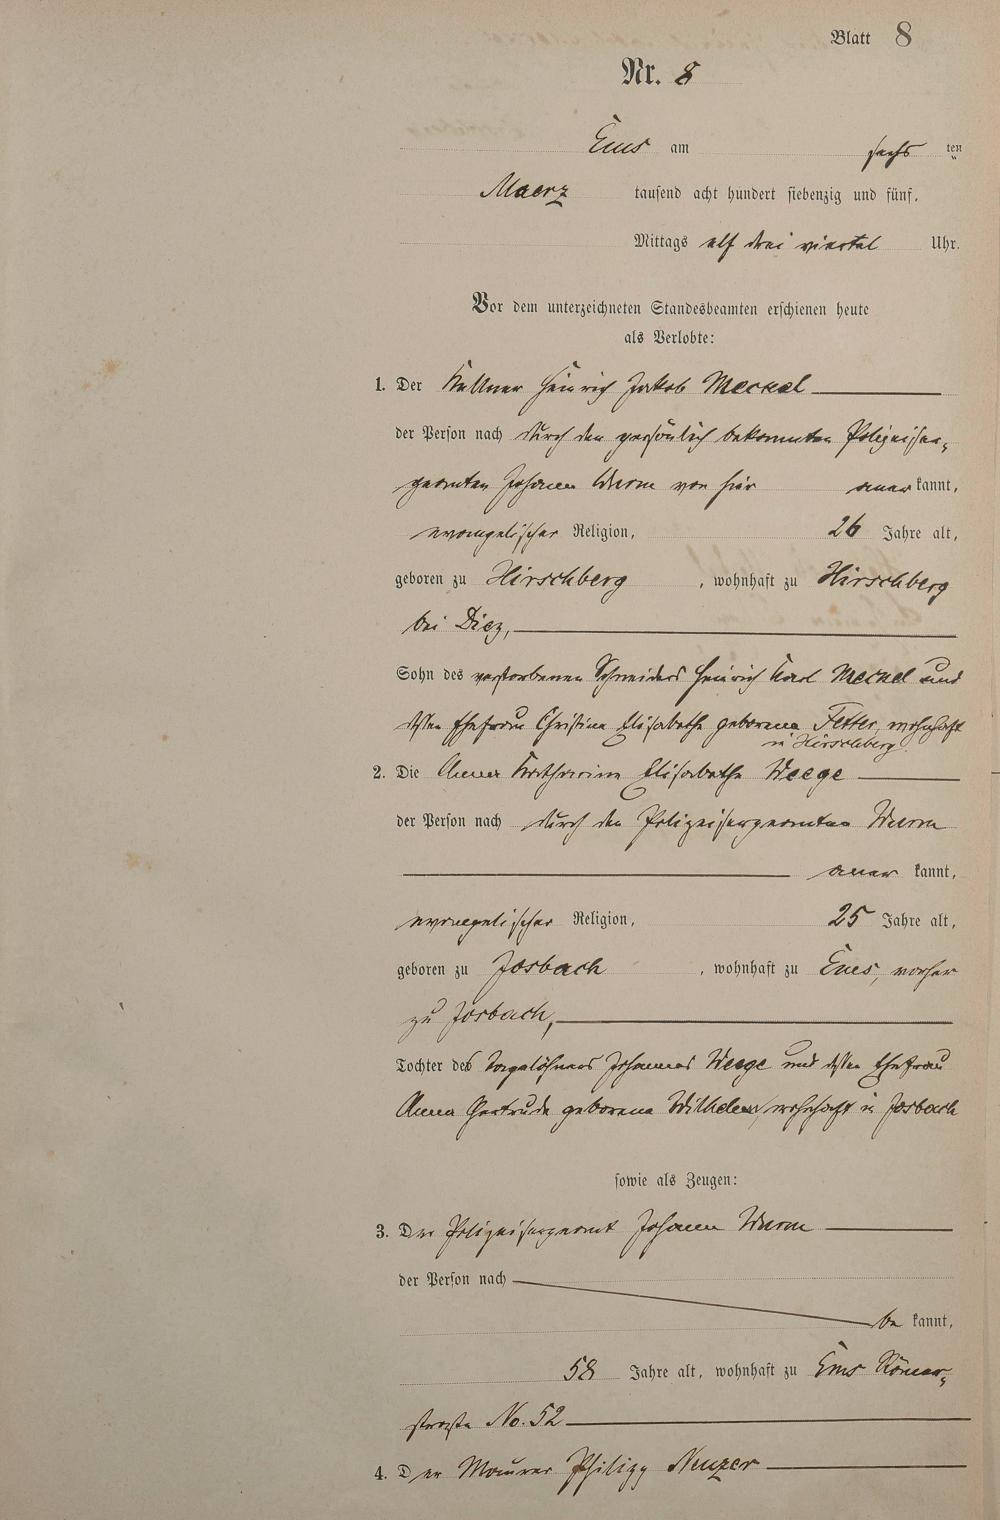 Blatt 8
Nr. 8
Ems am sechs ten
Maerz tausend acht hundert siebenzig und fünf,
Mittags elf drei viertel Uhr.
Vor dem unterzeichneten Standesbeamten erschienen heute
als Verlobte:
1. Der Kellner Heinrich Jakob Meckel
der Person nach durch den persönlich bekannten Polizeiser-
geanten Johann Wurm von hier aner kannt,
evangelischer Religion, 26 Jahre alt,
geboren zu Hirschberg, wohnhaft zu Hirschberg
bei Diez,
Sohn des verstorbenen Schneiders Heinrich Karl Meckel und
dessen Ehefrau Christine Elisabethe geborene Fetter, wohnhaft
in Hirschberg.
2. Die Anna Katharine Elisabethe Weege
der Person nach durch den Polizeisergeanten Wurm
aner kannt,
evangelischer Religion, 25 Jahre alt,
geboren zu Josbach, wohnhaft zu Ems, vorher
zu Josbach,
Tochter des Tagelöhners Johannes Weege und dessen Ehefrau
Anna Gertrude geborene Wilhelm, wohnhaft in Josbach
sowie als Zeugen:
3. Der Polizeisergeant Johann Wurm
der Person nach
be kannt,
58 Jahre alt, wohnhaft zu Ems Römer-
strasse No. 52
4. Der Maurer Philipp Neuzer